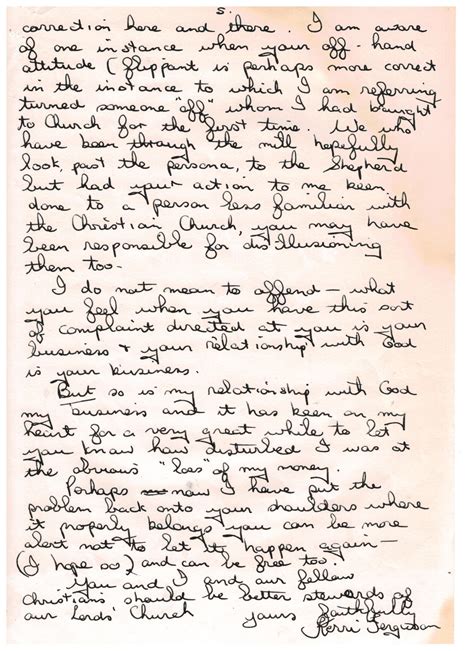 5.
correction here and there. I am aware
of one instance when your off-hand
attitude (flippant is perhaps more correct
in the instance to which I am referring
turned someone "off" whom I had brought
to Church for the first time. We who
have been through the mill hopefully
look past the persona, to the Shepherd
but had your action to me been
done to a person less familiar with
the Christian Church, you may have
been responsible for disillusioning
them too.
I do not mean to offend - what
you feel when you have this sort
of complaint directed at you is your
business & your relationship with God
is your business.
But so is my relationship with God
my business and it has been on my
heart for a very great while to let
you know how disturbed I was at
the obvious "loss" of my money.
Perhaps now I have put the
problem back onto your shoulders where
it properly belongs you can be more
alert not to let it happen again -
(I hope so) and can be free too.
You and I and our fellow
Christians should be better stewards of
our Lords' Church yours faithfully
Kerri Ferguson